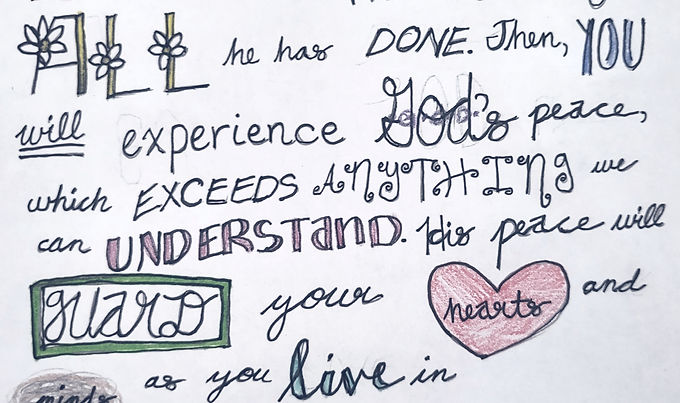 ALL he has DONE. Then, YOU
will experience God's peace,
which EXCEEDS ANYTHING we
can UNDERSTAND. His peace will
guard your hearts and
minds as you live in